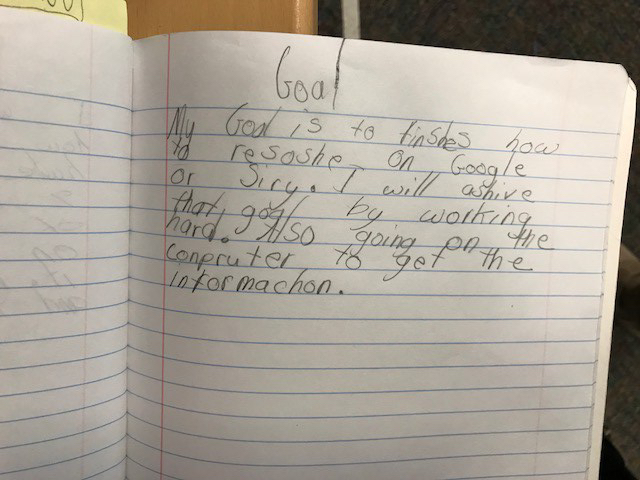 Goal
My Goal is to finshes how
to resoshe on Google
or Siry. I will ashive
that goal by working
hard. Also going on the
conpruter to get the
informachon.